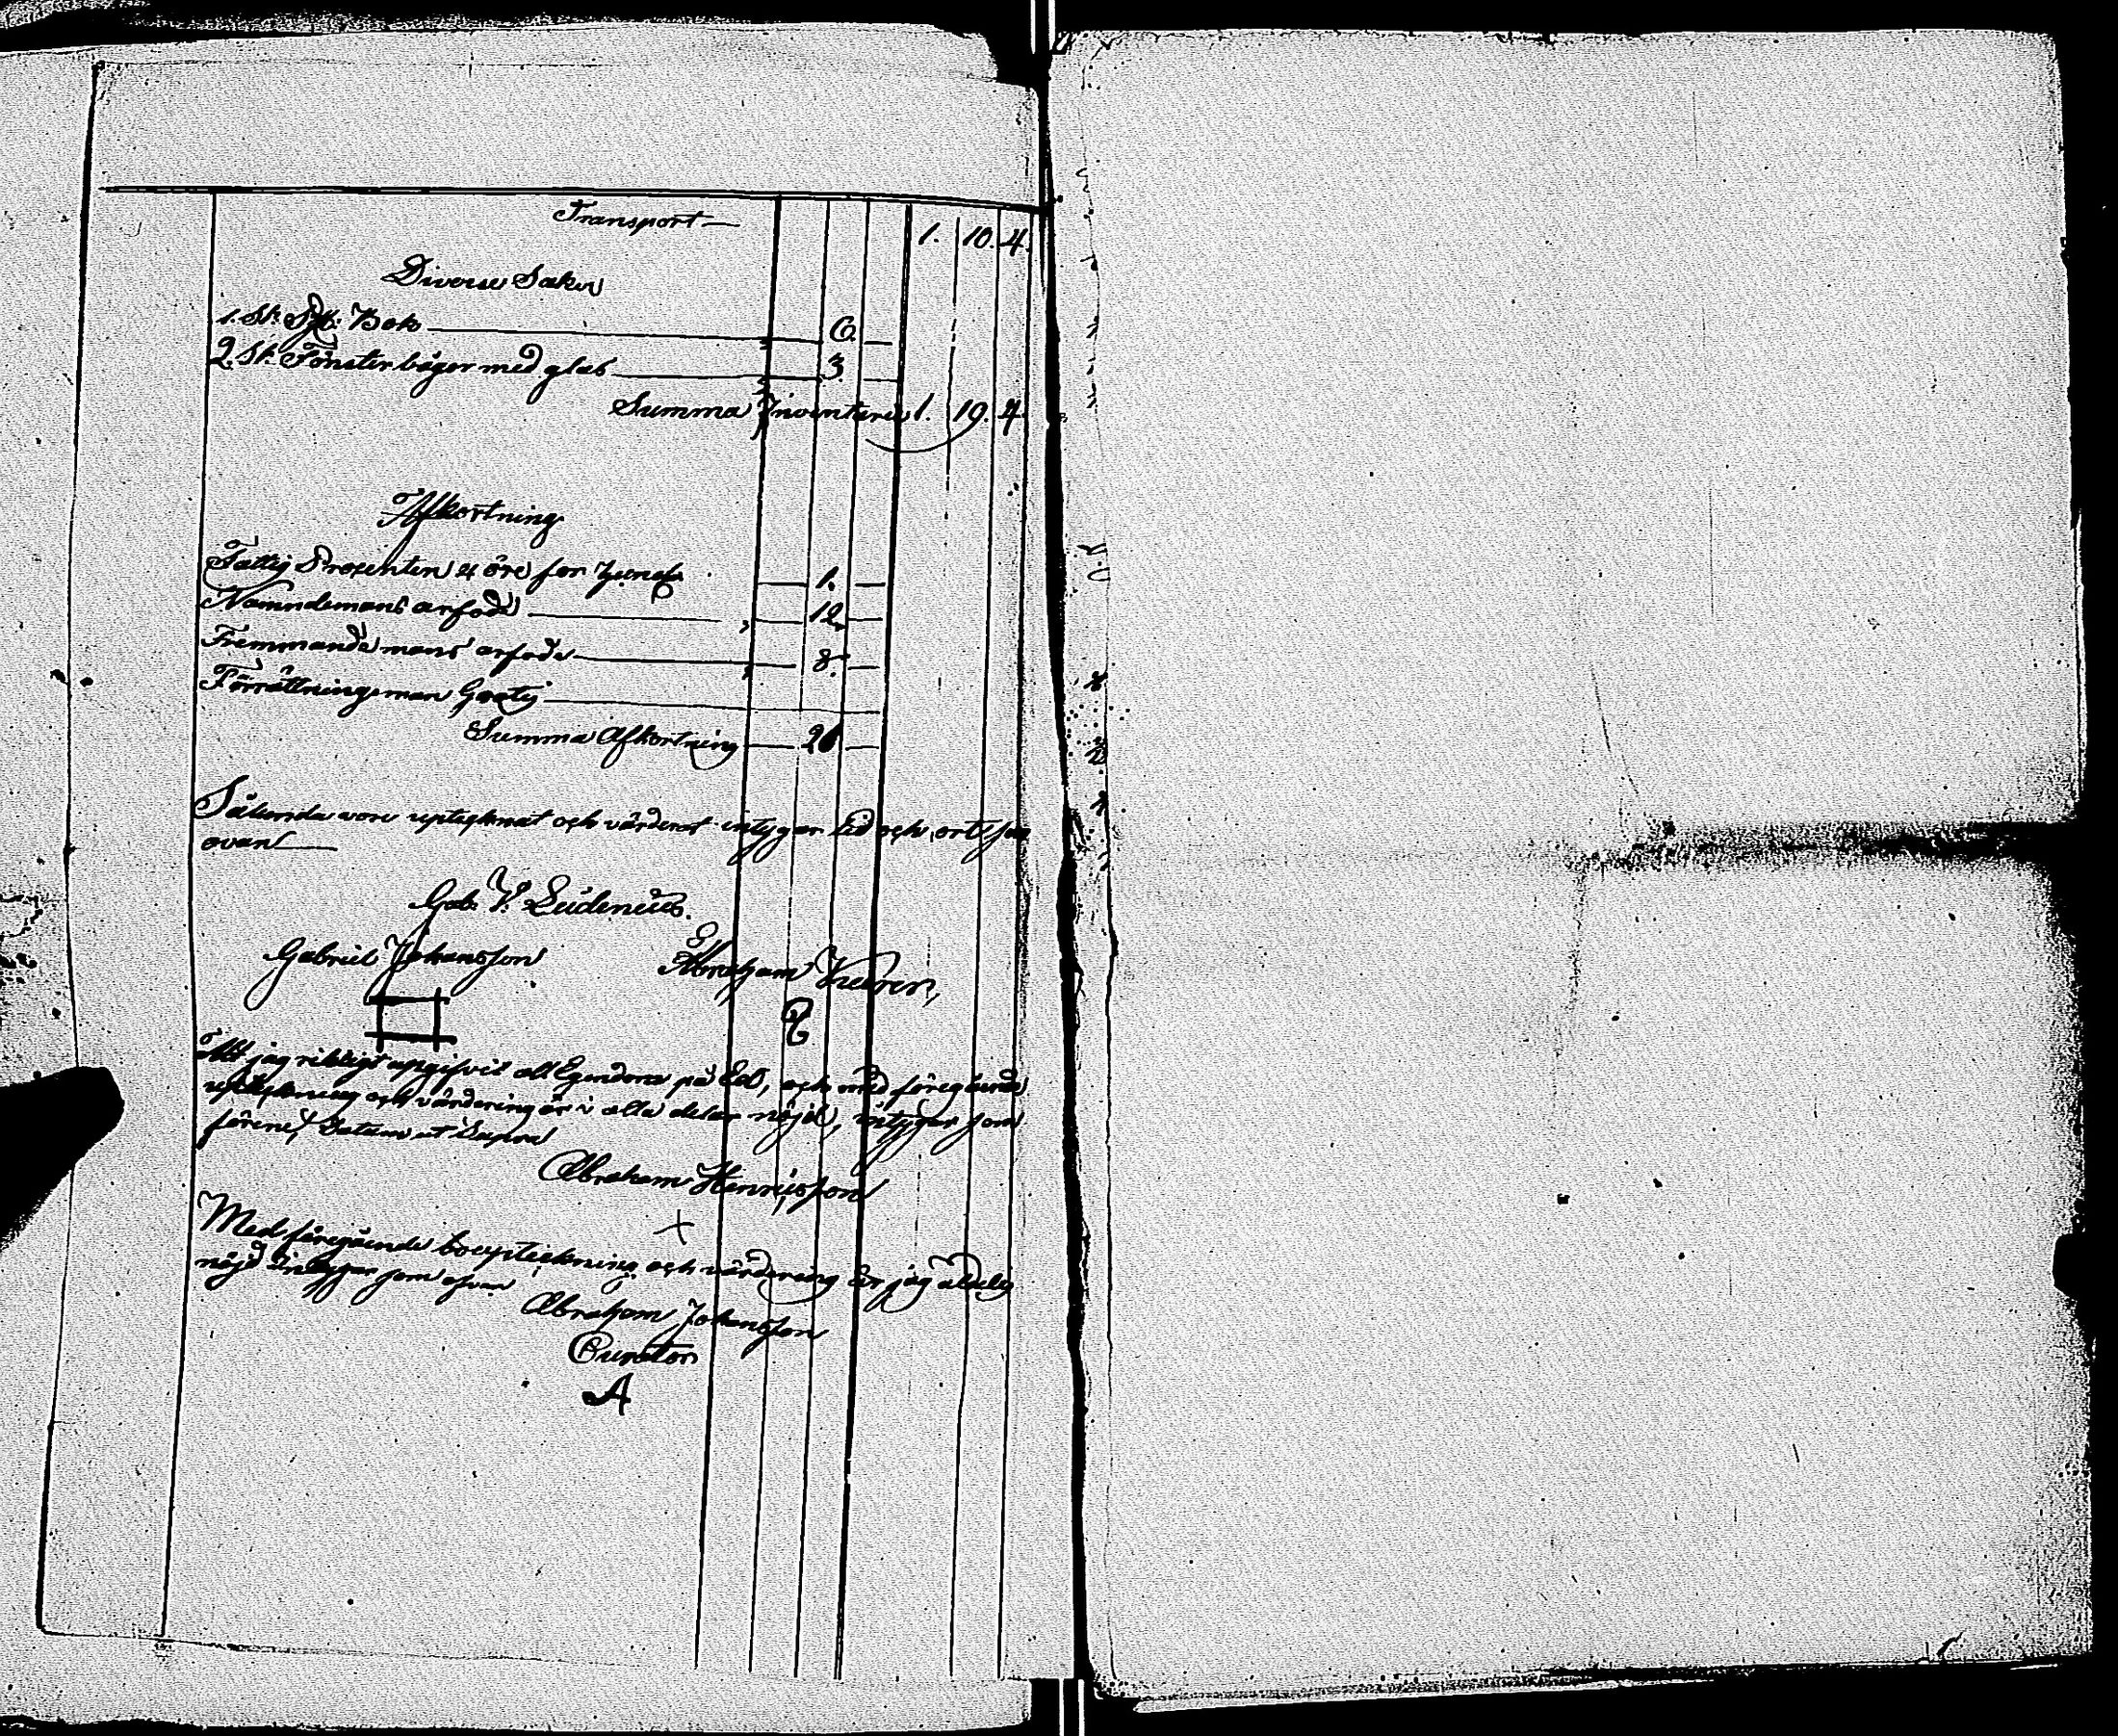 Transport — 1. 10. 4.
Diverse Saker
1. St: Bok — 6. —
2. St: Fönster bågor med glas — 3. —
Summa Inventarii 1. 19. 4.
Afkortning
Fattig Procenten 4 öre for — 1. —
Nämndemans arfode — 12. —
Fremmande mans arfode — 8. —
Förrättningsman Gratis —
Summa Afkortning — 21 —
Sålunda vore uptęknat och värderat intygar tid och ort som
ovan
Gab. W. Leidenius.
Gabriel Johansson Abraham
Att jag riktigt upgifvit all Egendom på Ed, och med föregående
uptekning och värdering är i alla delar nöjd, intygar som
förenet Datum ut Supra
Abraham Henricsson
Med föregående bouptekning och värdering är jag aldeles
nöjd intygar som ofvan
Abraham Johansson
Curator
A